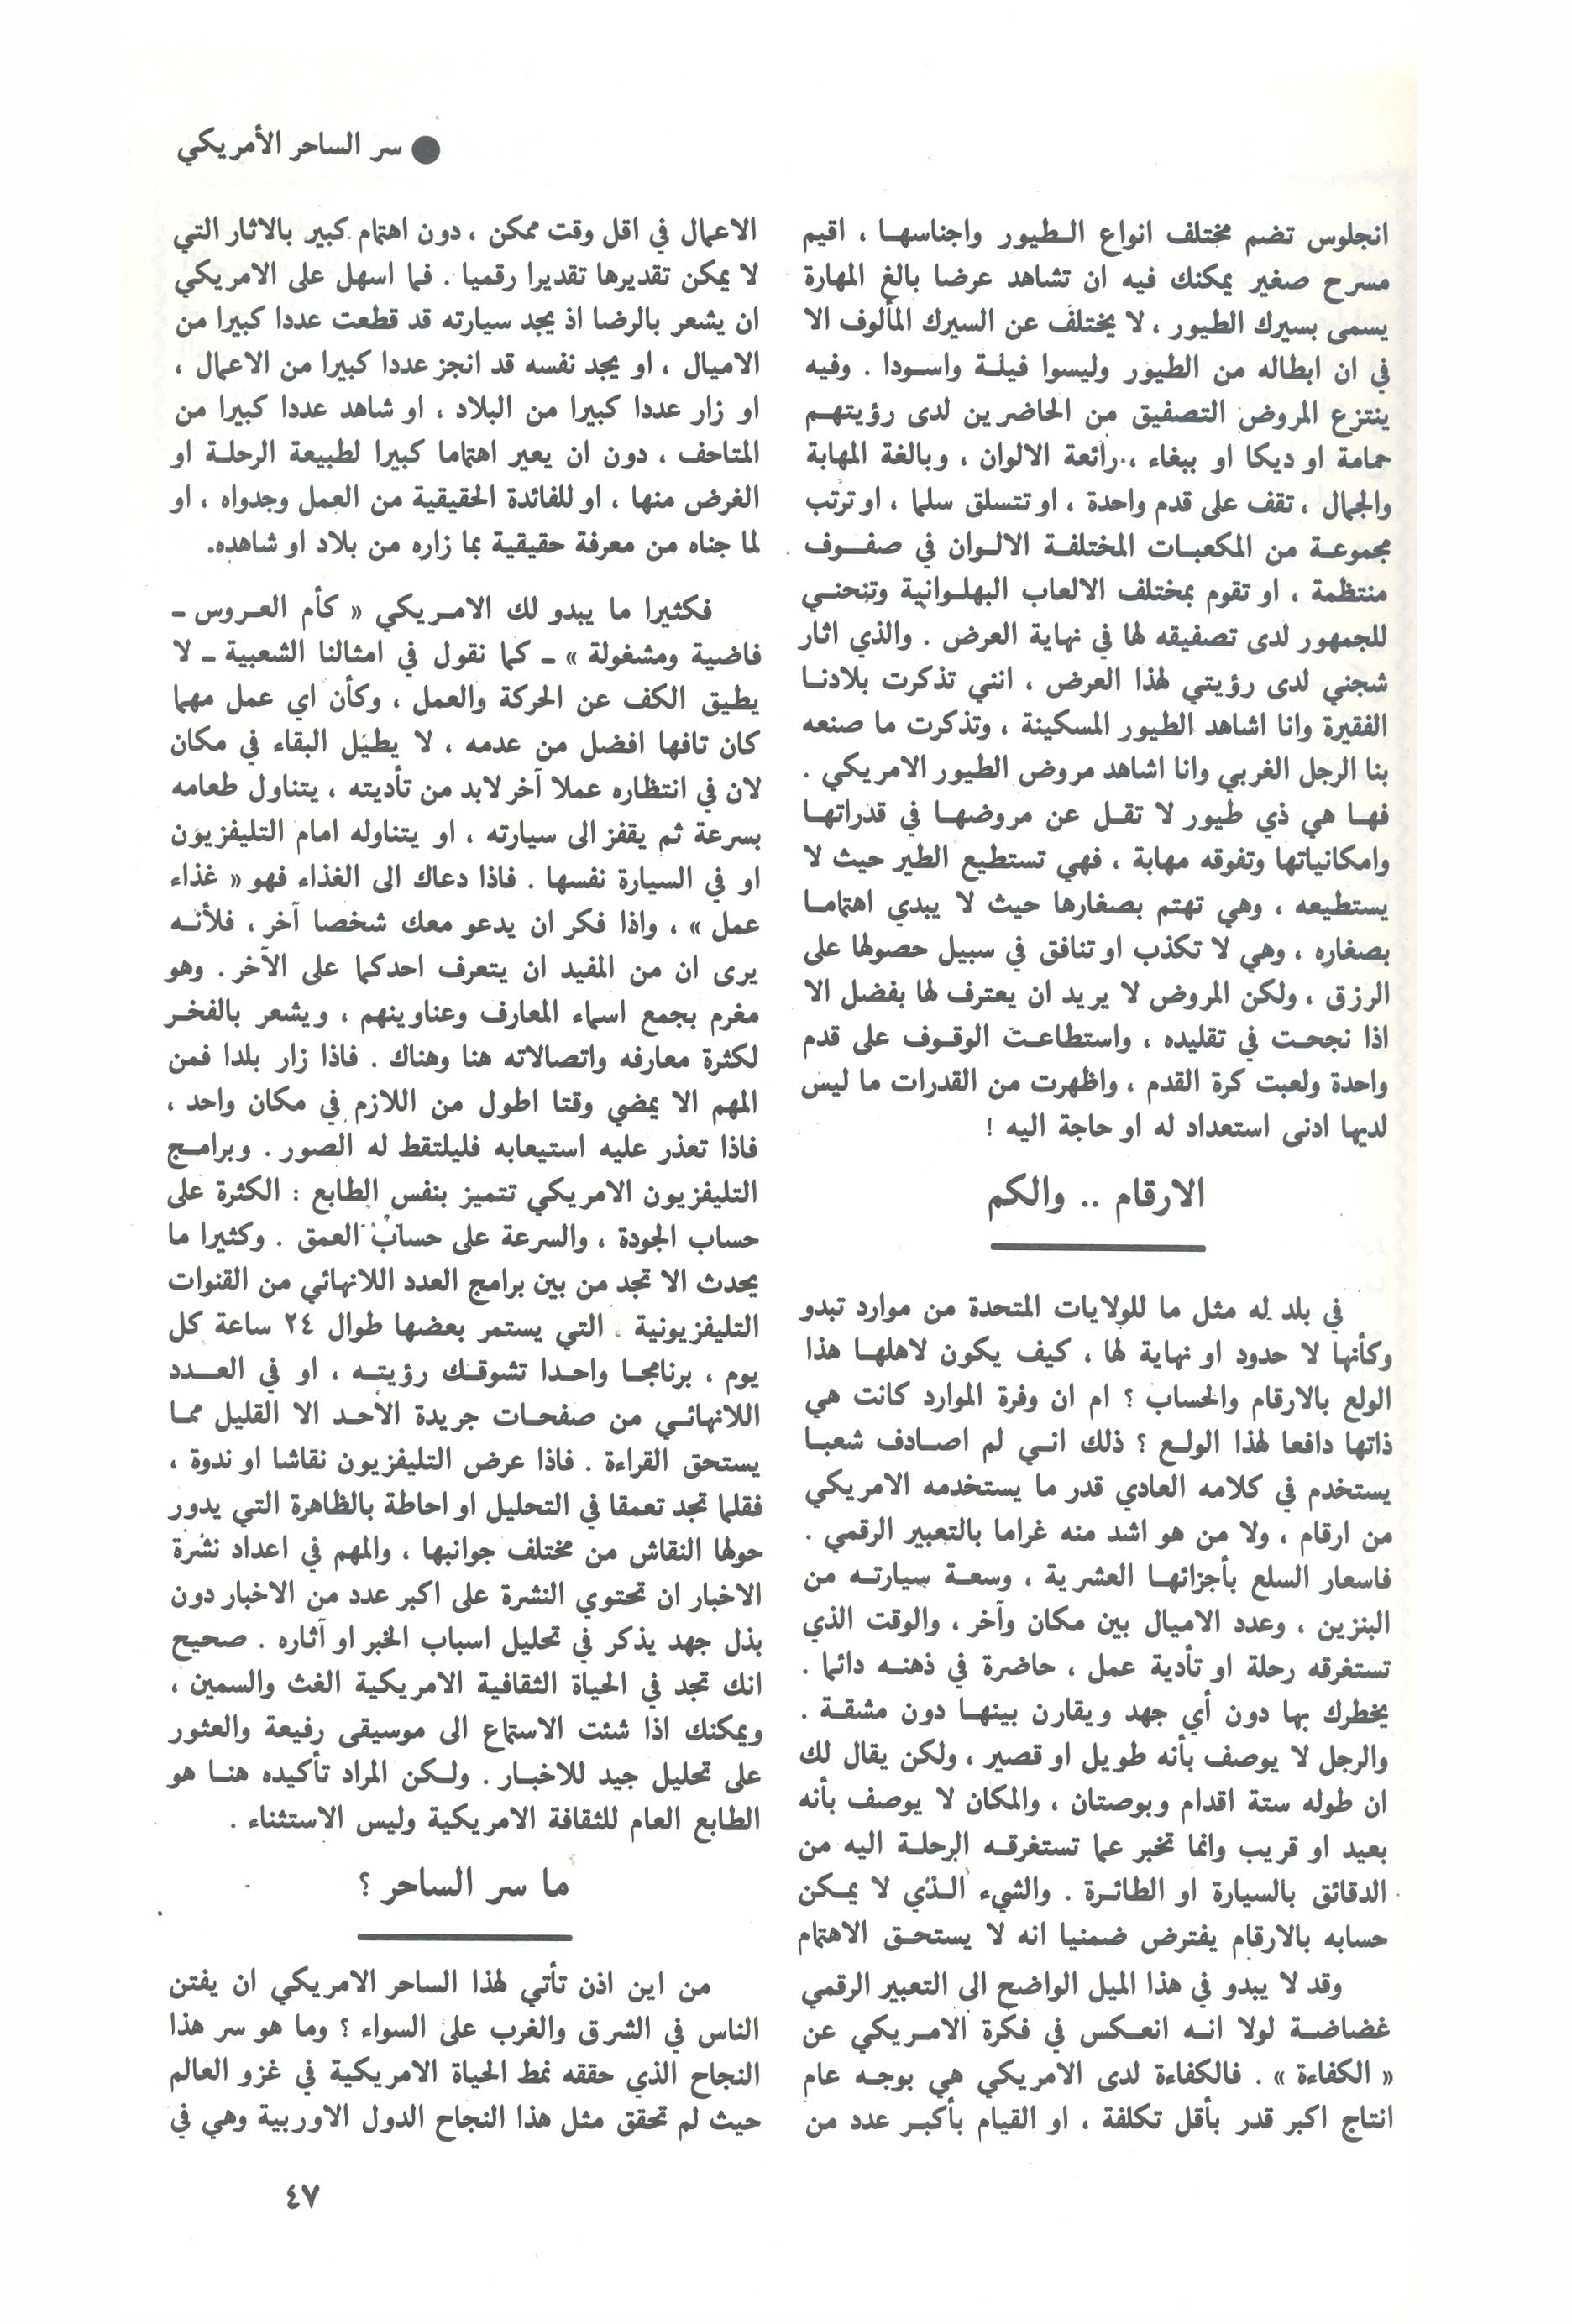 ● سر الساحر الأمريكي
انجلوس تضم مختلف انواع الطيور واجناسها ، اقيم
مسرح صغير يمكنك فيه ان تشاهد عرضا بالغ المهارة
يسمى بسيرك الطيور ، لا يختلف عن السيرك المألوف الا
في ان ابطاله من الطيور وليسوا فيلة واسودا . وفيه
ينتزع المروض التصفيق من الحاضرين لدى رؤيتهم
حمامة او ديكا او ببغاء ، رائعة الالوان ، وبالغة المهابة
والجمال ، تقف على قدم واحدة ، او تتسلق سلما ، او ترتب
مجموعة من المكعبات المختلفة الالوان في صفوف
منتظمة ، او تقوم بمختلف الالعاب البهلوانية وتنحني
للجمهور لدى تصفيقه لها في نهاية العرض . والذي اثار
شجني لدى رؤيتي لهذا العرض ، انني تذكرت بلادنا
الفقيرة وانا اشاهد الطيور المسكينة ، وتذكرت ما صنعه
بنا الرجل الغربي وانا اشاهد مروض الطيور الامريكي .
فها هي ذي طيور لا تقل عن مروضها في قدراتها
وامكانياتها وتفوقه مهابة ، فهي تستطيع الطير حيث لا
يستطيعه ، وهي تهتم بصغارها حيث لا يبدي اهتماما
بصغاره ، وهي لا تكذب او تنافق في سبيل حصولها على
الرزق ، ولكن المروض لا يريد ان يعترف لها بفضل الا
اذا نجحت في تقليده ، واستطاعت الوقوف على قدم
واحدة ولعبت كرة القدم ، واظهرت من القدرات ما ليس
لديها ادنى استعداد له او حاجة اليه !
الارقام .. والكم
في بلد له مثل ما للولايات المتحدة من موارد تبدو
وكأنها لا حدود او نهاية لها ، كيف يكون لاهلها هذا
الولع بالارقام والحساب ؟ ام ان وفرة الموارد كانت هي
ذاتها دافعا لهذا الولع ؟ ذلك اني لم اصادف شعبا
يستخدم في كلامه العادي قدر ما يستخدمه الامريكي
من ارقام ، ولا من هو اشد منه غراما بالتعبير الرقمي .
فاسعار السلع بأجزائها العشرية ، وسعة سيارته من
البنزين ، وعدد الاميال بين مكان وآخر ، والوقت الذي
تستغرقه رحلة او تأدية عمل ، حاضرة في ذهنه دائما .
يخطرك بها دون أي جهد ويقارن بينها دون مشقة .
والرجل لا يوصف بأنه طويل او قصير ، ولكن يقال لك
ان طوله ستة اقدام وبوصتان ، والمكان لا يوصف بأنه
بعيد او قريب وانما تخبر عما تستغرقه الرحلة اليه من
الدقائق بالسيارة او الطائرة . والشيء الذي لا يمكن
حسابه بالارقام يفترض ضمنيا انه لا يستحق الاهتمام
وقد لا يبدو في هذا الميل الواضح الى التعبير الرقمي
غضاضة لولا انه انعكس في فكرة الامريكي عن
« الكفاءة » . فالكفاءة لدى الامريكي هي بوجه عام
انتاج اكبر قدر بأقل تكلفة ، او القيام بأكبر عدد من
الاعمال في اقل وقت ممكن ، دون اهتمام كبير بالاثار التي
لا يمكن تقديرها تقديرا رقميا . فما اسهل على الامريكي
ان يشعر بالرضا اذ يجد سيارته قد قطعت عددا كبيرا من
الاميال ، او يجد نفسه قد انجز عددا كبيرا من الاعمال ،
او زار عددا كبيرا من البلاد ، او شاهد عددا كبيرا من
المتاحف ، دون ان يعير اهتماما كبيرا لطبيعة الرحلة او
الغرض منها ، او للفائدة الحقيقية من العمل وجدواه ، او
لما جناه من معرفة حقيقية بما زاره من بلاد او شاهده.
فكثيرا ما يبدو لك الامريكي « كأم العروس ـ
فاضية ومشغولة » ـ كما نقول في امثالنا الشعبية ـ لا
يطيق الكف عن الحركة والعمل ، وكأن اي عمل مهما
كان تافها افضل من عدمه ، لا يطيل البقاء في مكان
لان في انتظاره عملا آخر لابد من تأديته ، يتناول طعامه
بسرعة ثم يقفز الى سيارته ، او يتناوله امام التليفزيون
او في السيارة نفسها . فاذا دعاك الى الغذاء فهو « غذاء
عمل » ، واذا فكر ان يدعو معك شخصا آخر ، فلأنه
يرى ان من المفيد ان يتعرف احدكما على الآخر . وهو
مغرم بجمع اسماء المعارف وعناوينهم ، ويشعر بالفخر
لكثرة معارفه واتصالاته هنا وهناك . فاذا زار بلدا فمن
المهم الا يمضي وقتا اطول من اللازم في مكان واحد ،
فاذا تعذر عليه استيعابه فليلتقط له الصور . وبرامج
التليفزيون الامريكي تتميز بنفس الطابع : الكثرة على
حساب الجودة ، والسرعة على حساب العمق . وكثيرا ما
يحدث الا تجد من بين برامج العدد اللانهائي من القنوات
التليفزيونية ، التي يستمر بعضها طوال ٢٤ ساعة كل
يوم ، برنامجا واحدا تشوقك رؤيته ، او في العدد
اللانهائي من صفحات جريدة الأحد الا القليل مما
يستحق القراءة . فاذا عرض التليفزيون نقاشا او ندوة ،
فقلما تجد تعمقا في التحليل او احاطة بالظاهرة التي يدور
حولها النقاش من مختلف جوانبها ، والمهم في اعداد نشرة
الاخبار ان تحتوي النشرة على اكبر عدد من الاخبار دون
بذل جهد يذكر في تحليل اسباب الخبر او آثاره . صحيح
انك تجد في الحياة الثقافية الامريكية الغث والسمين ،
ويمكنك اذا شئت الاستماع الى موسيقى رفيعة والعثور
على تحليل جيد للاخبار . ولكن المراد تأكيده هنا هو
الطابع العام للثقافة الامريكية وليس الاستثناء .
ما سر الساحر ؟
من اين اذن تأتي لهذا الساحر الامريكي ان يفتن
الناس في الشرق والغرب على السواء ؟ وما هو سر هذا
النجاح الذي حققه نمط الحياة الامريكية في غزو العالم
حيث لم تحقق مثل هذا النجاح الدول الاوربية وهي في
٤٧